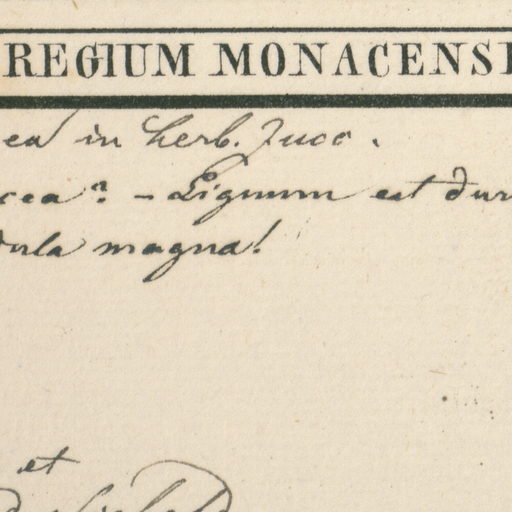 REGIUM MONACENSI
ea in herb. Zucc.
cea? – Lignum est dur
dula magna!
et